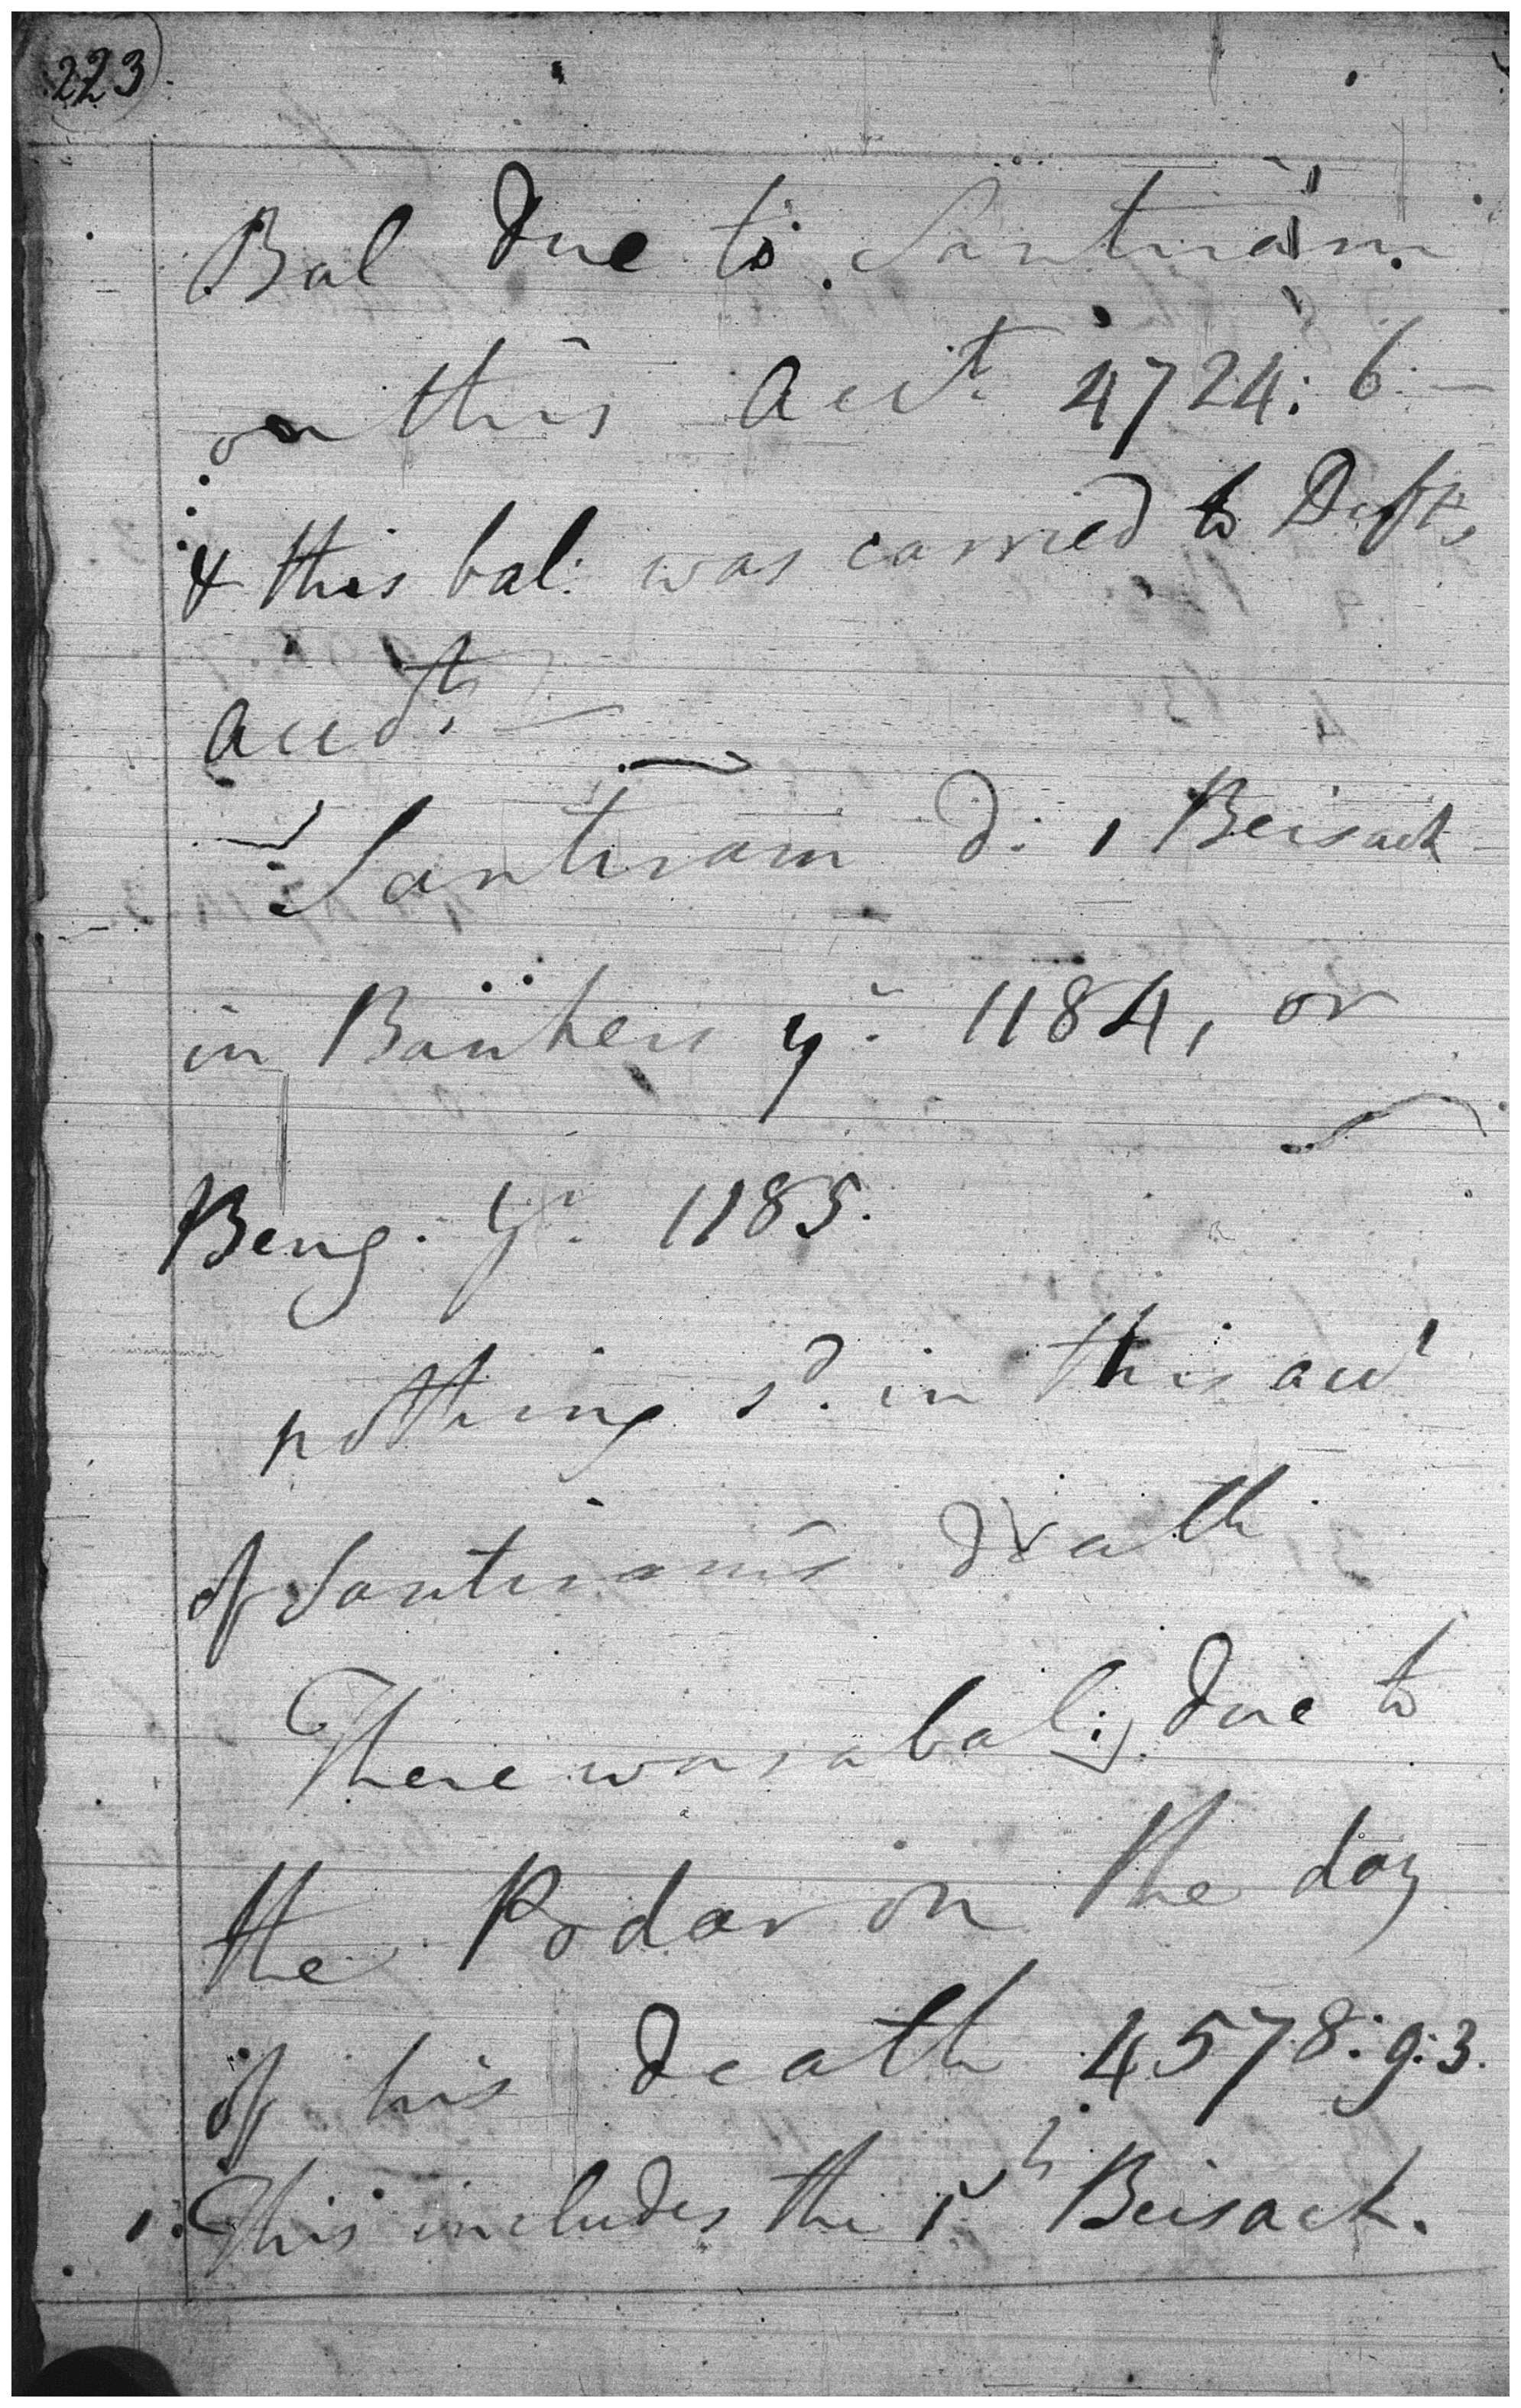 223
Bal due to Santiram
on this acct. 4724: 6 -
& this bal: was carried to Defts
accts. -
Santiram d. 1 Beisack
in Bankers yr. 1184, or
Beng. yr. 1185.
nothing sd. in this acct
of Santiram's death
There was a bal: due to
the Podar on the day
of his death 4578: 9: 3.
This includes the 1st Beisack.